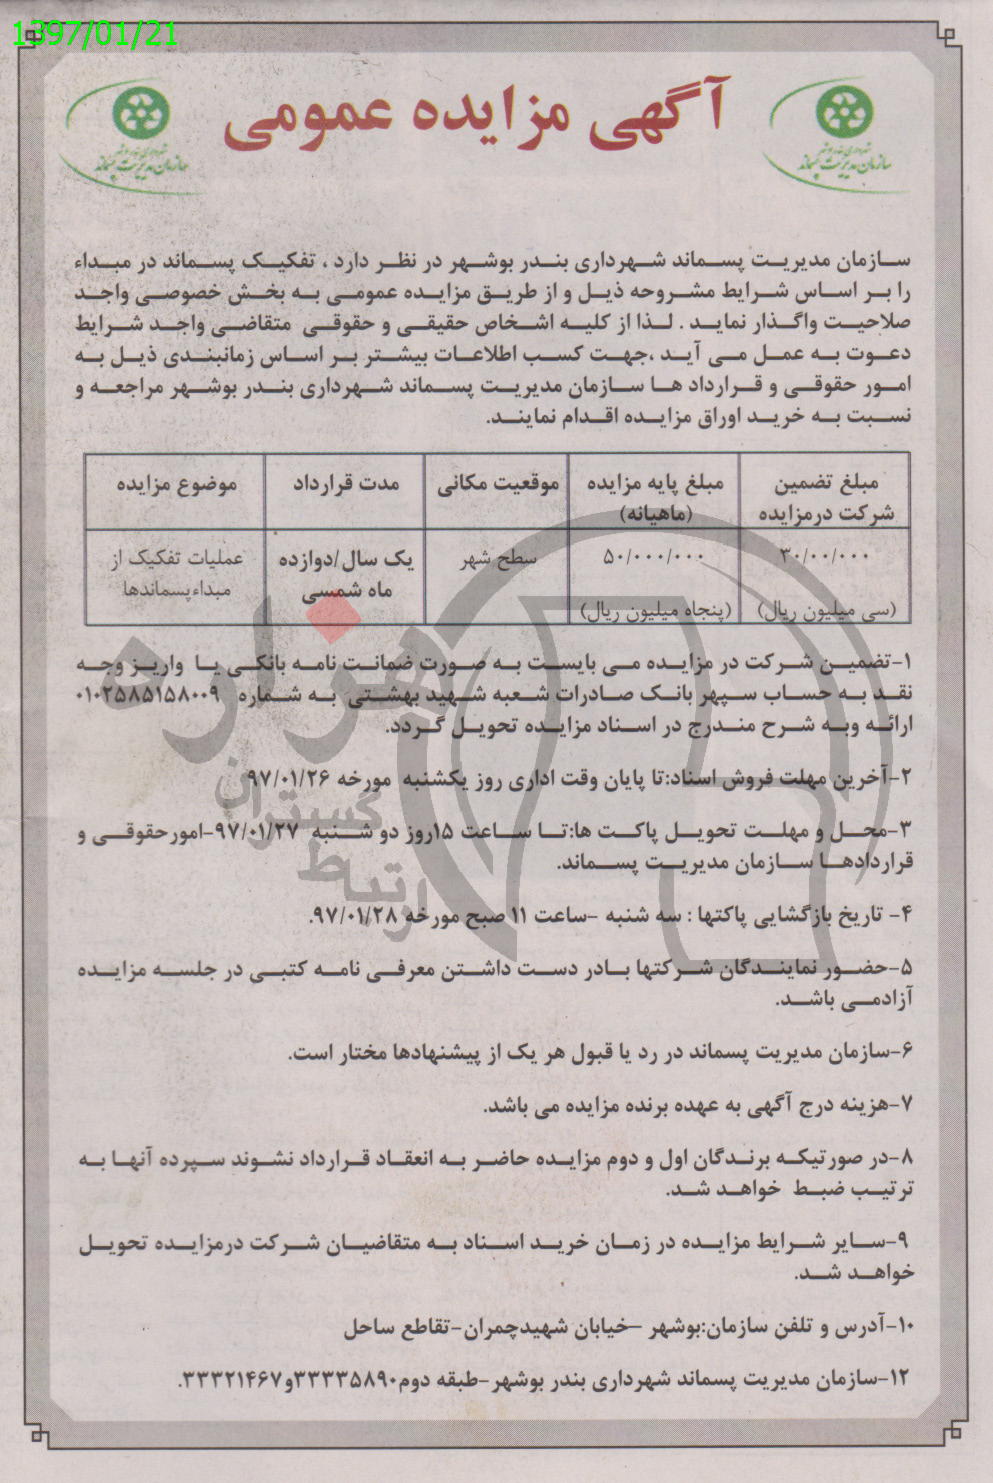 1397/01/21
آگهی مزایده عمومی
شهرداری بندر بوشهر
سازمان مدیریت پسماند
شهرداری بندر بوشهر
سازمان مدیریت پسماند
سازمان مدیریت پسماند شهرداری بندر بوشهر در نظر دارد ، تفکیک پسماند در مبداء
را بر اساس شرایط مشروحه ذیل و از طریق مزایده عمومی به بخش خصوصی واجد
صلاحیت واگذار نماید . لذا از کلیه اشخاص حقیقی و حقوقی متقاضی واجد شرایط
دعوت به عمل می آید ،جهت کسب اطلاعات بیشتر بر اساس زمانبندی ذیل به
امور حقوقی و قرارداد ها سازمان مدیریت پسماند شهرداری بندر بوشهر مراجعه و
نسبت به خرید اوراق مزایده اقدام نمایند.
مبلغ تضمین شرکت درمزایده
مبلغ پایه مزایده (ماهیانه)
موقعیت مکانی
مدت قرارداد
موضوع مزایده
۳۰/۰۰/۰۰۰ (سی میلیون ریال)
۵۰/۰۰۰/۰۰۰ (پنجاه میلیون ریال)
سطح شهر
یک سال/دوازده ماه شمسی
عملیات تفکیک از مبداءپسماندها
۱-تضمین شرکت در مزایده می بایست به صورت ضمانت نامه بانکی یا واریز وجه
نقد به حساب سپهر بانک صادرات شعبه شهید بهشتی به شماره ۰۱۰۲۵۸۵۱۵۸۰۰۹
ارائه وبه شرح مندرج در اسناد مزایده تحویل گردد.
۲-آخرین مهلت فروش اسناد:تا پایان وقت اداری روز یکشنبه مورخه ۹۷/۰۱/۲۶
۳-محل و مهلت تحویل پاکت ها:تا ساعت ۱۵روز دو شنبه ۹۷/۰۱/۲۷-امورحقوقی و
قراردادها سازمان مدیریت پسماند.
۴- تاریخ بازگشایی پاکتها : سه شنبه -ساعت ۱۱ صبح مورخه ۹۷/۰۱/۲۸.
۵-حضور نمایندگان شرکتها بادر دست داشتن معرفی نامه کتبی در جلسه مزایده
آزادمی باشد.
۶-سازمان مدیریت پسماند در رد یا قبول هر یک از پیشنهادها مختار است.
۷-هزینه درج آگهی به عهده برنده مزایده می باشد.
۸-در صورتیکه برندگان اول و دوم مزایده حاضر به انعقاد قرارداد نشوند سپرده آنها به
ترتیب ضبط خواهد شد.
۹-سایر شرایط مزایده در زمان خرید اسناد به متقاضیان شرکت درمزایده تحویل
خواهد شد.
۱۰-آدرس و تلفن سازمان:بوشهر -خیابان شهیدچمران-تقاطع ساحل
۱۲-سازمان مدیریت پسماند شهرداری بندر بوشهر-طبقه دوم۳۳۳۳۵۸۹۰و۳۳۳۲۱۴۶۷.
هزاره
ارتباط
گستران